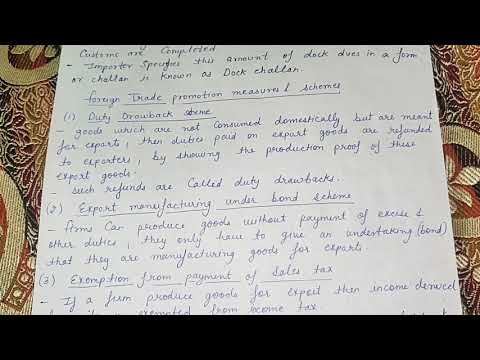 Customs are Completed
- Importer Specifies this amount of dock dues in a form
or challan is known as Dock challan.
Foreign Trade promotion measures & schemes
(1) Duty Drawback scheme
- goods which are not Consumed domestically but are meant
for exports, then duties paid on export goods are refunded
to exporters, by showing the production proof of these
export goods.
- Such refunds are Called duty drawbacks.
(2) Export manufacturing under bond scheme
- firms Can produce goods without payment of excise &
other duties, they only have to give an undertaking (bond)
that they are manufacturing goods for exports.
(3) Exemption from payment of Sales tax
- If a firm produce goods for export then income derived
exempted from income tax.